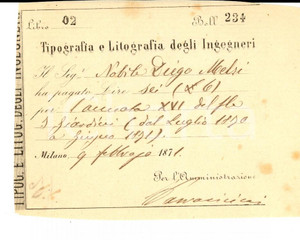 Libro 02 Boll. 234
Tipografia e Litografia degli Ingegneri
Il Sig. Nobile Diego Melzi
ha pagato Lire sei (£ 6)
per l'annata XVI del
Giardini (dal Luglio 1870
a Giugno 1871).
Milano 9 febbrajo 1871.
Per l'Amministrazione
TIPOG. E LITOG. DEGLI INGEGNERI